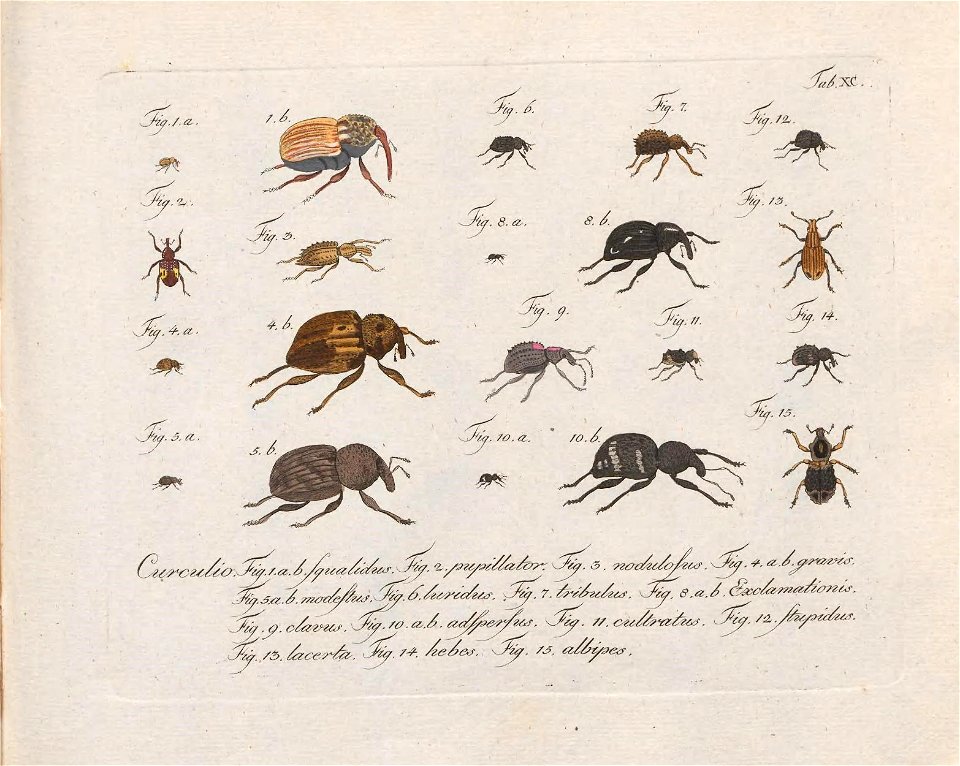 Tab. XC.
Fig. 1. a.
1. b.
Fig. 6.
Fig. 7.
Fig. 12.
Fig. 2.
Fig. 3.
Fig. 8. a.
8. b.
Fig. 13.
Fig. 4. a.
4. b.
Fig. 9.
Fig. 11.
Fig. 14.
Fig. 5. a.
5. b.
Fig. 10. a.
10. b.
Fig. 15.
Curculio. Fig. 1. a. b. ſqualidus. Fig. 2. pupillator. Fig. 3. noduloſus. Fig. 4. a. b. gravis.
Fig. 5 a. b. modeſtus. Fig. 6. luridus. Fig. 7. tribulus. Fig. 8. a. b. Exclamationis.
Fig. 9. clavus. Fig. 10. a. b. adſperſus. Fig. 11. cultratus. Fig. 12. ſtupidus.
Fig. 13. lacerta. Fig. 14. hebes. Fig. 15. albipes.